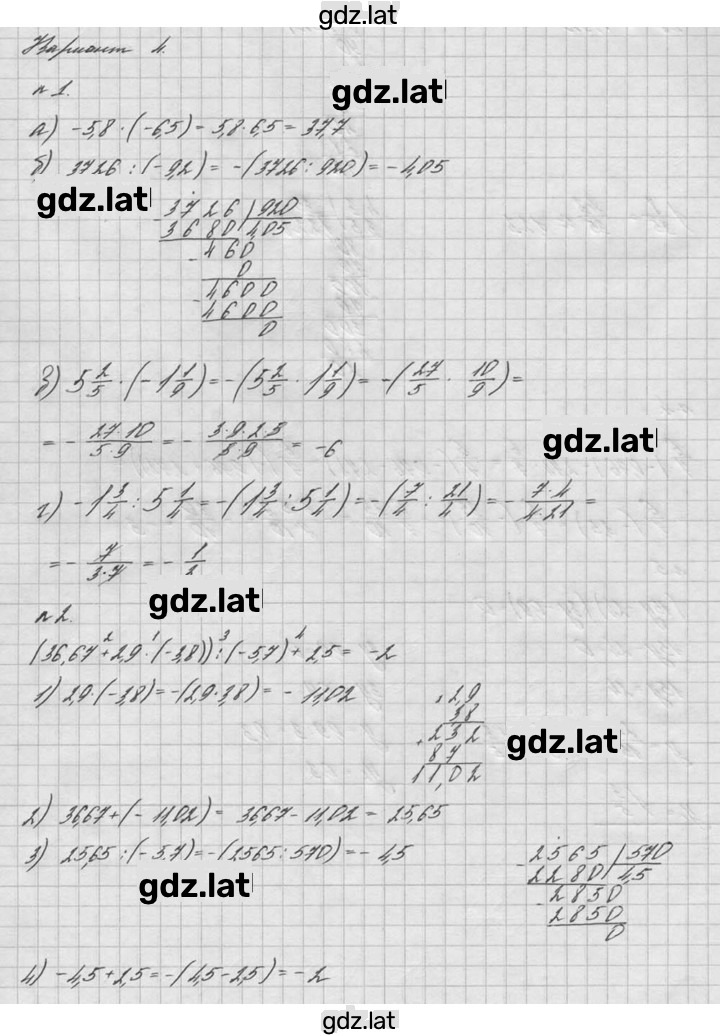 gdz.lat
Вариант 4.
gdz.lat
№1.
а) -5,8 · (-6,5) = 5,8 · 6,5 = 37,7
б) 3726 : (-9,2) = -(3726 : 920) = -4,05
gdz.lat
- 3726 | 920
3680 | 4,05
- 460
0
- 4600
4600
0
в) 5 2/5 · (-1 1/9) = -(5 2/5 · 1 1/9) = -(27/5 · 10/9) =
= - 27·10/5·9 = - 3·9·2·5/5·9 = -6
gdz.lat
г) -1 3/4 : 5 1/4 = -(1 3/4 : 5 1/4) = -(7/4 : 21/4) = - 7·4/4·21 =
= - 7/3·7 = - 1/3
gdz.lat
№2.
(36,67 + 2,9 · (-3,8)) : (-5,7) + 2,5 = -2
1) 2,9 · (-3,8) = -(2,9 · 3,8) = -11,02
× 2,9
38
+ 232
87
11,02
gdz.lat
2) 36,67 + (-11,02) = 36,67 - 11,02 = 25,65
3) 25,65 : (-5,7) = -(2565 : 570) = -4,5
- 2565 | 570
2280 | 4,5
- 2850
2850
0
gdz.lat
4) -4,5 + 2,5 = -(4,5 - 2,5) = -2
gdz.lat